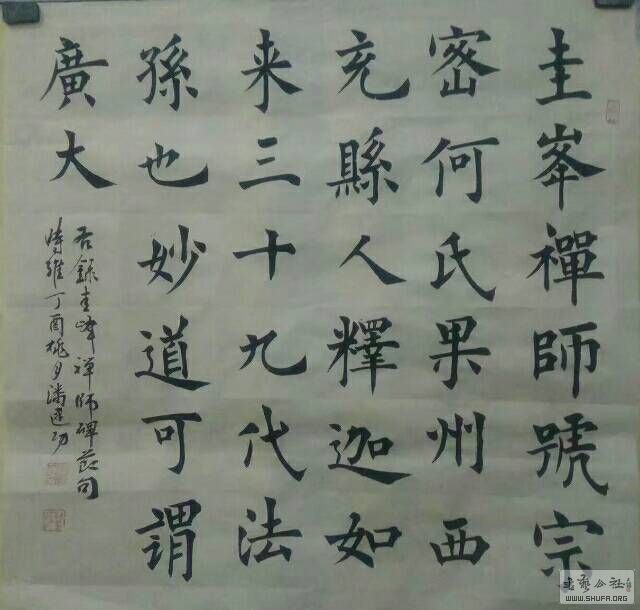 圭峯禪師號宗
密何氏果州西
充縣人釋迦如
来三十九代法
孫也妙道可謂
廣大
右録圭峰禪師碑苐句
時維丁酉桃月潘運功
WWW.SHUFA.ORG